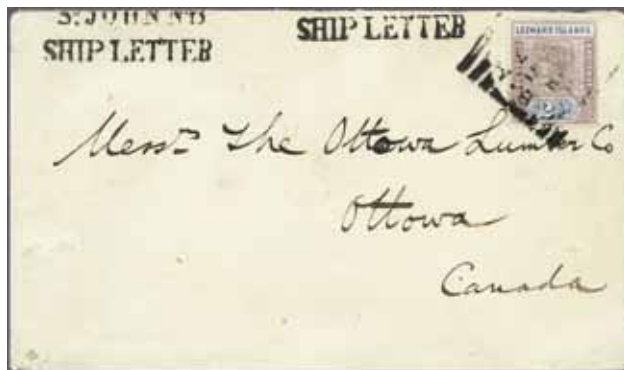 S. JOHN N·B
SHIP LETTER
SHIP LETTER
LEEWARD ISLANDS
Messrs The Ottowa Lumber Co
Ottowa
Canada